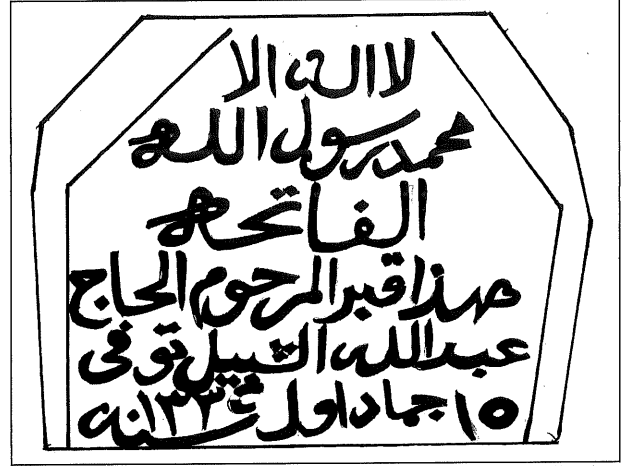 لا اله الا
محمد رسول الله
الفاتحه
هذا قبر المرحوم الحاج
عبدالله الشبيل توفى
١٥ جماد اول سنه